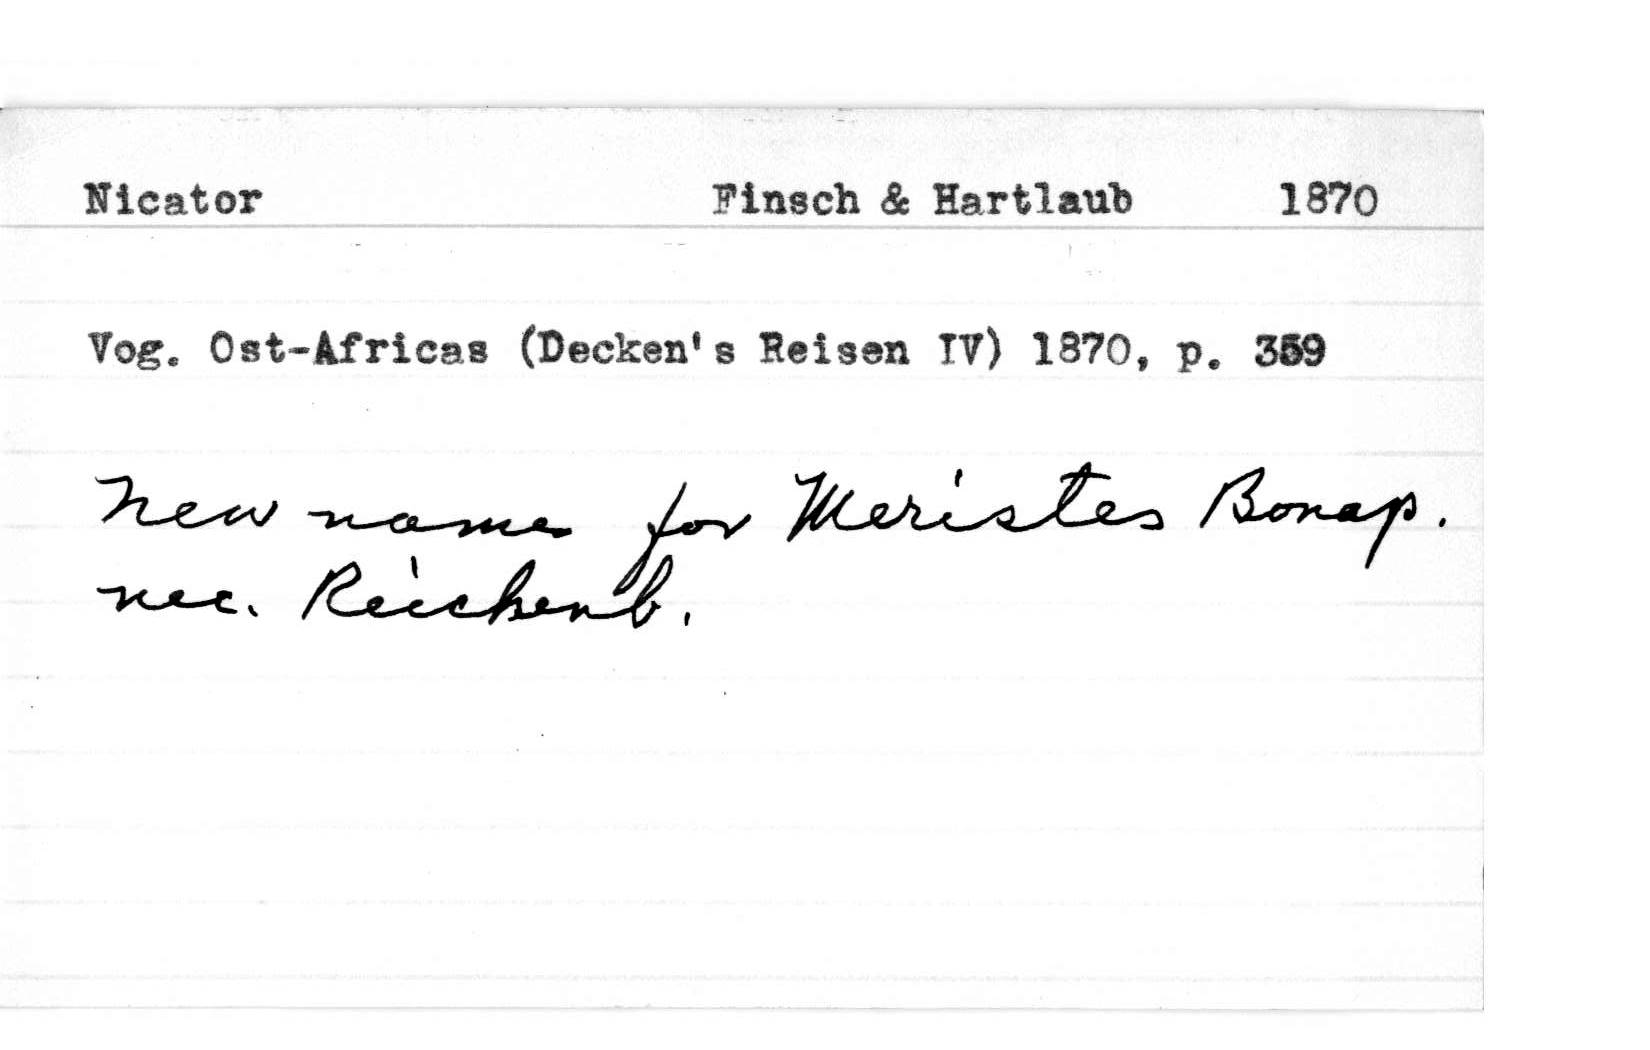 Nicator Finsch & Hartlaub 1870
Vog. Ost-Africas (Decken's Reisen IV) 1870, p. 359
New name for Meristes Bonap.
nec. Reichenb.